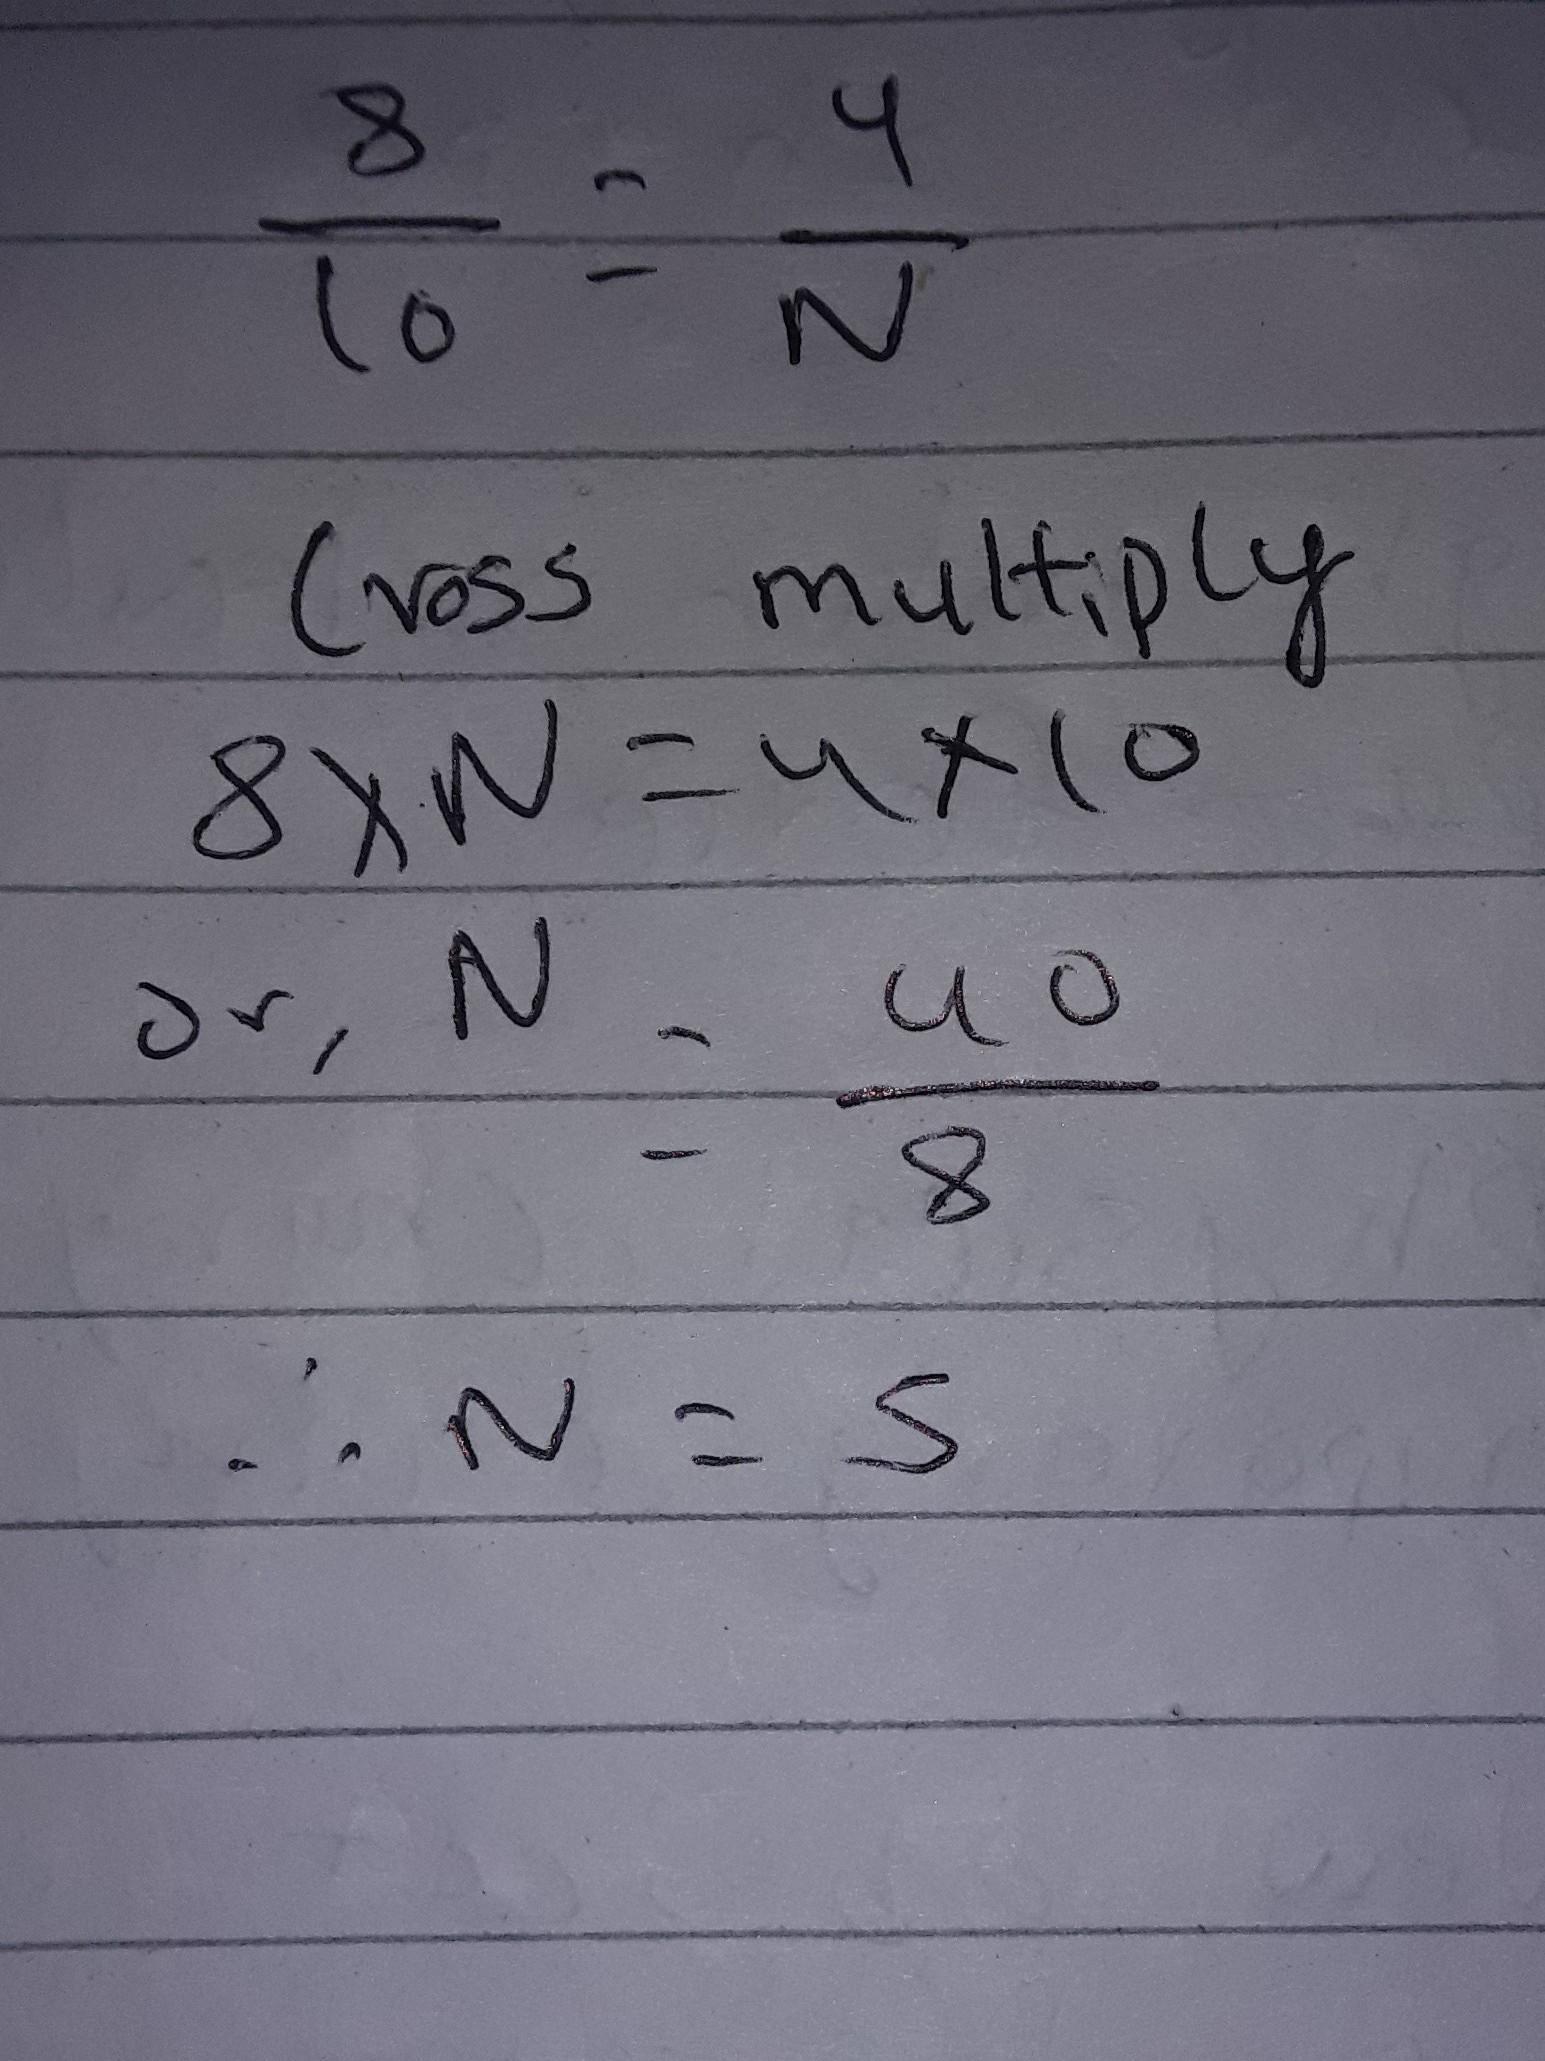 8/10 = 4/N
Cross multiply
8×N = 4×10
or, N = 40/8
∴ N = 5